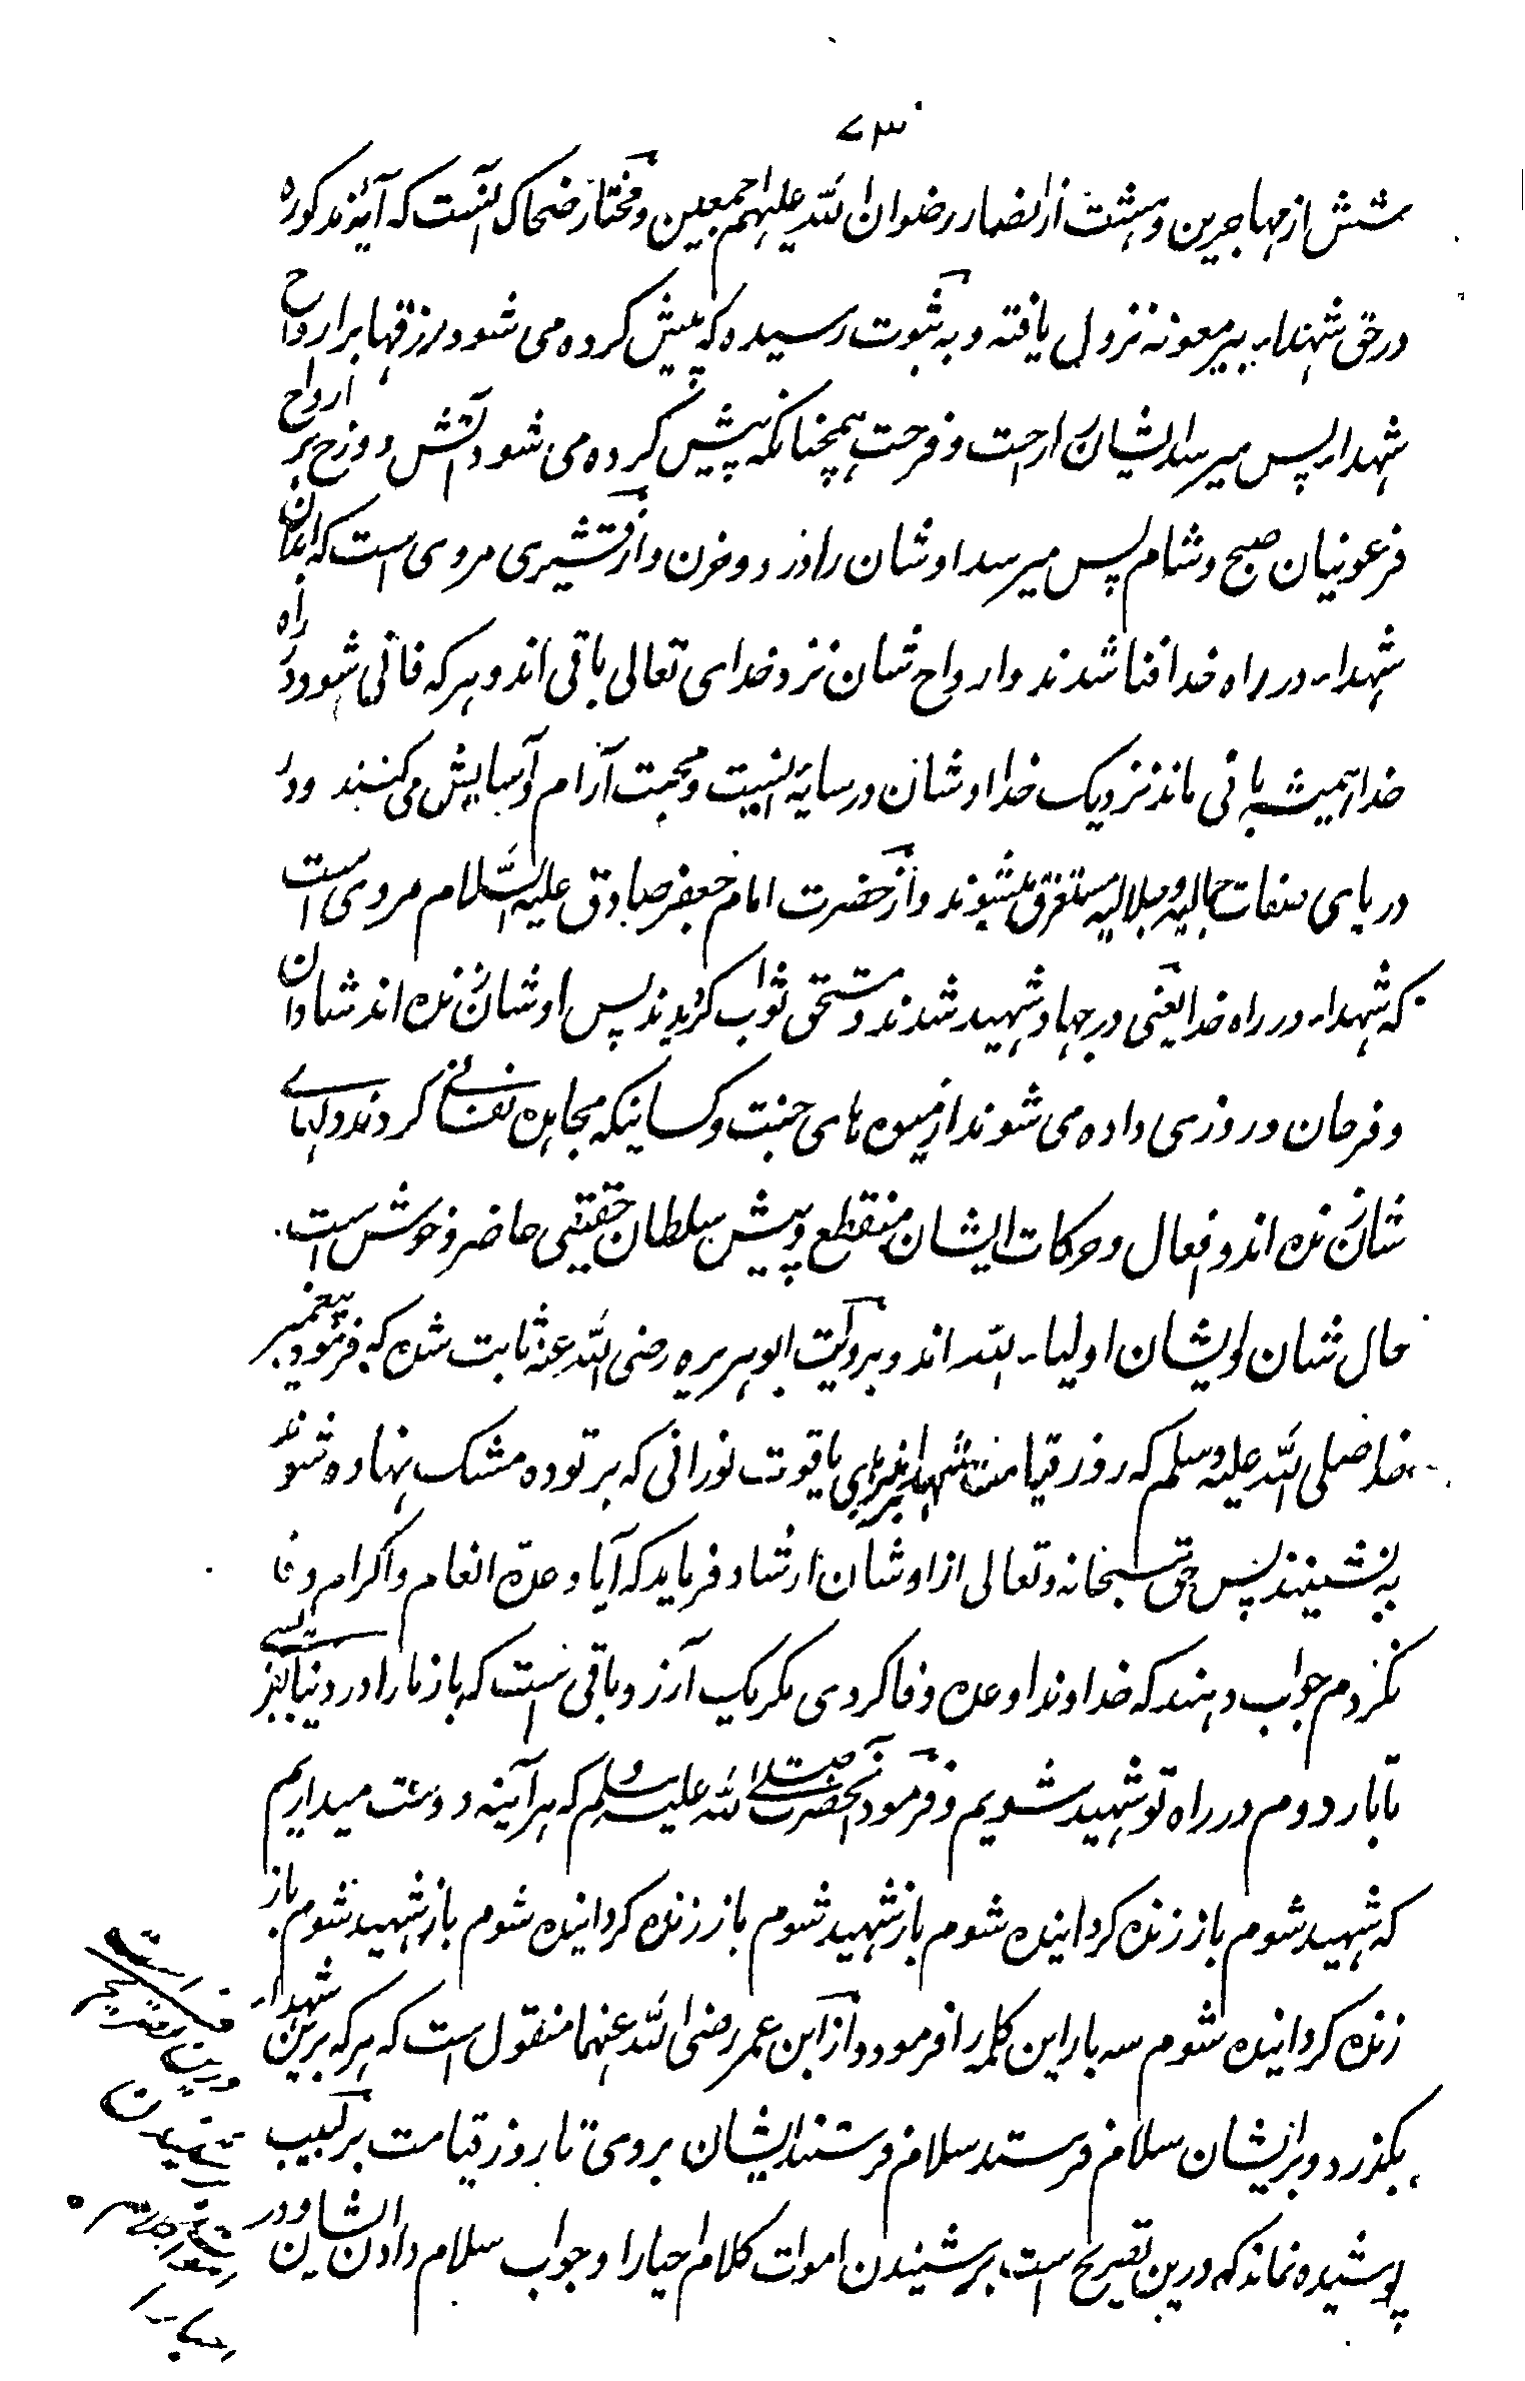 ۷۳
شش از مهاجرین و هشت از انصار رضوان الله علیهم اجمعین و مختار ضحاک آنست که آیهٔ مذکوره
در حق شهداء بیر معونه نزول یافته و به ثبوت رسیده که پیش کرده می شود رزقها بر ارواح
شهدا پس میرسد ایشان را راحت و فرحت همچنانکه پیش کرده می شود آتش دوزخ بر ارواح
فرعونیان صبح و شام پس میرسد اوشان را درد و حزن و از قشیری مروی است که ابدان
شهداء در راه خدا فنا شدند و ارواح شان نزد خدای تعالی باقی اند و هر که فانی شود در راه
خدا همیشه باقی ماند نزدیک خدا اوشان در سایهٔ انسیت و محبت آرام و آسایش می کنند و در
دریای صفات جمالیه و جلالیه مستغرق میشوند و از حضرت امام جعفر صادق علیه السلام مروی است
که شهداء در راه خدا یعنی در جهاد شهید شدند و مستحق ثواب گردیدند پس اوشان زنده اند شادان
و فرحان و روزی داده می شوند از میوه های جنت و کسانیکه مجاهده نفسانی کردند دلهای
شان زنده اند و افعال و حرکات ایشان منقطع و پیش سلطان حقیقی حاضر و خوش است
حال شان و ایشان اولیاء الله اند و بروایت ابو هریره رضی الله عنه ثابت شده که فرمود پیغمبر
خدا صلی الله علیه وسلم که روز قیامت شهدا بر منبرهای یاقوت نورانی که بر توده مشک نهاده شوند
به نشینند پس حق سبحانه و تعالی از اوشان ارشاد فرماید که آیا وعدهٔ انعام و اکرام وفا
نکردم جواب دهند که خداوندا وعده وفا کردی مگر یک آرزو باقی است که باز ما را در دنیا بفرستی
تا بار دوم در راه تو شهید شویم و فرمود آنحضرت صلی الله علیه وسلم که هر آئینه دوست میداریم
که شهید شوم باز زنده گردانیده شوم باز شهید شوم باز زنده گردانیده شوم باز شهید شوم باز
زنده گردانیده شوم سه بار این کلمه را فرمود و از ابن عمر رضی الله عنهما منقول است که هر که برین شهداء
بگذرد و بر ایشان سلام فرستد سلام فرستند ایشان بر وی تا روز قیامت بر لبیب
پوشیده نماند که درین تصریح است بر شنیدن اموات کلام احیا را و جواب سلام دادن ایشان و درین
درین تصریح است
شنیدن